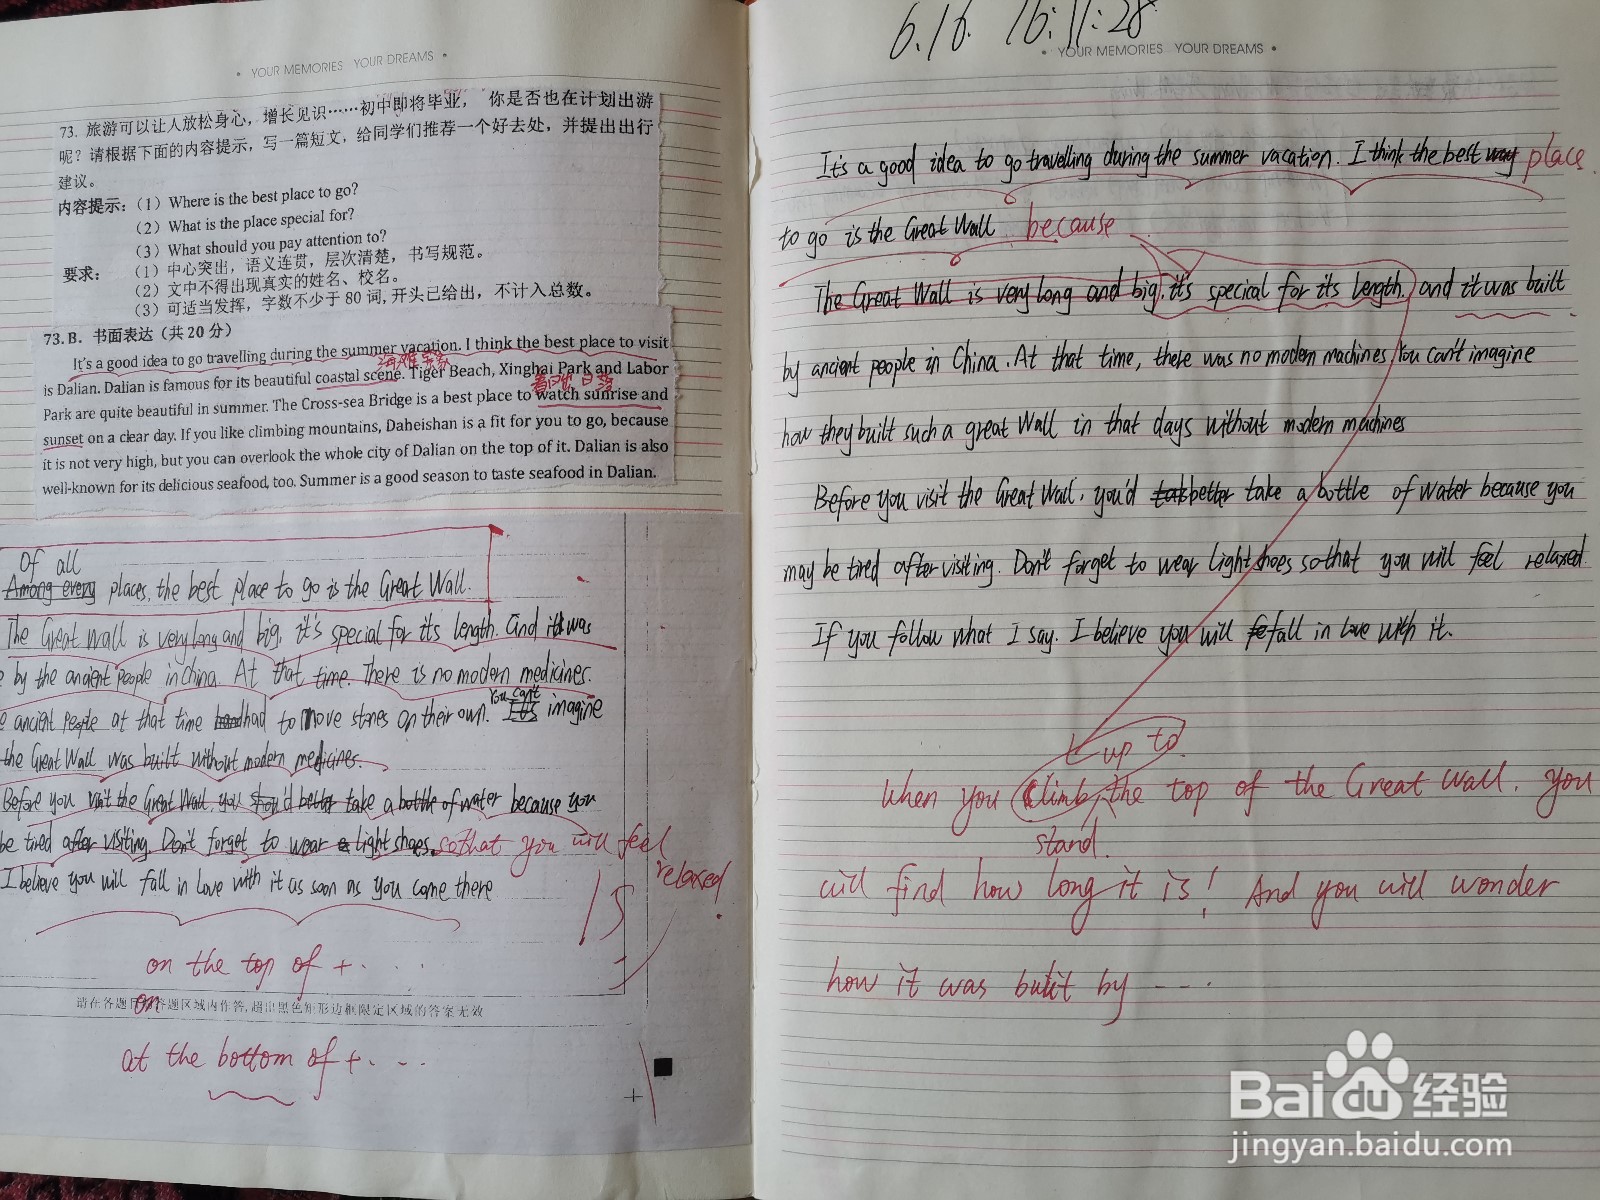 • YOUR MEMORIES YOUR DREAMS •
73. 旅游可以让人放松身心，增长见识……初中即将毕业， 你是否也在计划出游
呢？请根据下面的内容提示，写一篇短文，给同学们推荐一个好去处，并提出出行
建议。
内容提示：（1）Where is the best place to go?
（2）What is the place special for?
（3）What should you pay attention to?
要求：（1）中心突出，语义连贯，层次清楚，书写规范。
（2）文中不得出现真实的姓名、校名。
（3）可适当发挥，字数不少于 80 词，开头已给出，不计入总数。
73. B. 书面表达（共 20 分）
It's a good idea to go travelling during the summer vacation. I think the best place to visit
is Dalian. Dalian is famous for its beautiful coastal scene. Tiger Beach, Xinghai Park and Labor
Park are quite beautiful in summer. The Cross-sea Bridge is a best place to watch sunrise and
sunset on a clear day. If you like climbing mountains, Daheishan is a fit for you to go, because
it is not very high, but you can overlook the whole city of Dalian on the top of it. Dalian is also
well-known for its delicious seafood, too. Summer is a good season to taste seafood in Dalian.
Of all
Among every places, the best place to go is the Great Wall.
The Great Wall is very long and big, it's special for its length. And it was
by the ancient people in China. At that time. There is no modern medicines.
ancient people at that time had to move stones on their own. You can't imagine
the Great Wall was built without modern medicines.
Before you visit the Great Wall, you should better take a bottle of water because you
be tired after visiting. Don't forget to wear a light shoes. so that you will feel
relaxed.
I believe you will fall in love with it as soon as you come there
15
on the top of + ...
on
请在各题目的答题区域内作答，超出黑色矩形边框限定区域的答案无效
at the bottom of + ...
6.16. 16:11:28
• YOUR MEMORIES YOUR DREAMS •
It's a good idea to go travelling during the summer vacation. I think the best way place
to go is the Great Wall because
The Great Wall is very long and big, it's special for its length. and it was built
by ancient people in China. At that time, there was no modern machines. You can't imagine
how they built such a great Wall in that days without modern machines
Before you visit the Great Wall, you'd better take a bottle of water because you
may be tired after visiting. Don't forget to wear light shoes so that you will feel relaxed.
If you follow what I say. I believe you will fall in love with it.
up to
When you climb the top of the Great Wall. you
stand
will find how long it is! And you will wonder
how it was built by ...
Baidu经验
jingyan.baidu.com